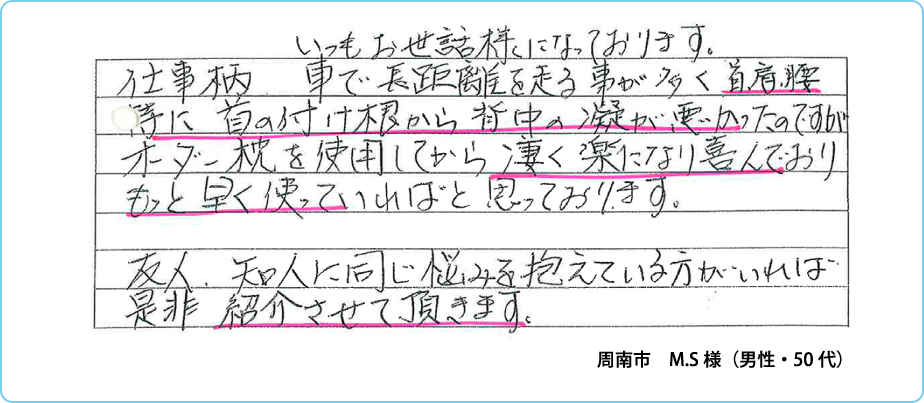 いつもお世話様になっております。
仕事柄 車で長距離を走る事が多く首、肩、腰
特に首の付け根から背中の凝が悪かったのですが
オーダー枕を使用してから凄く楽になり喜んでおり
もっと早く使っていればと思っております。
友人、知人に同じ悩みを抱えている方がいれば
是非 紹介させて頂きます。
周南市 M.S 様（男性・50 代）